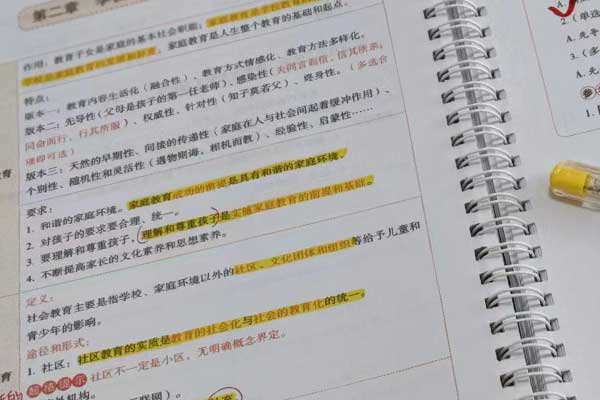 第二章
作用：教育子女是家庭的基本社会职能；家庭教育是学校教育
学校是家庭教育的发展和拼音；家庭教育是人生整个教育的基础和起点。
特点：
版本一：教育内容生活化（融合性）、教育方式情感化、教育方法多样化。
版本二：先导性（父母是孩子的第一任老师）、感染性（夫同言而信，信其所亲；
同命而行，行其所服）、权威性、针对性（知子莫若父）、终身性。（多选合
项即可选）
版本三：天然的早期性、间接的传递性（家庭在人与社会间起着缓冲作用）、
个别性、随机性和灵活性（遇物则诲，相机而教）、经验性、启蒙性……
要求：
1. 和谐的家庭环境。家庭教育成功的前提是具有和谐的家庭环境。
2. 对孩子的要求要合理、统一。
3. 要理解和尊重孩子。理解和尊重孩子是实施家庭教育的前提和基础。
4. 不断提高家长的文化素养和思想素养。
定义：
社会教育主要是指学校、家庭环境以外的社区、文化团体和组织等给予儿童和
青少年的影响。
途径和形式：
1. 社区：社区教育的实质是教育的社会化与社会的教育化的统一。
超格提示 社区不一定是小区，无明确概念界定。
机构。
联网）。
教育
教育
2.
（单选
A.
3.（多
A. 先
1.